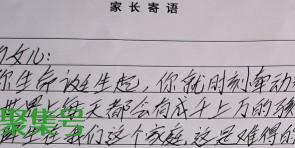 家长寄语
女儿:
生命诞生起,你就时刻牵动
世界上每天都会有成千上万的孩
生在我们这个家庭,这是难得的
聚集号